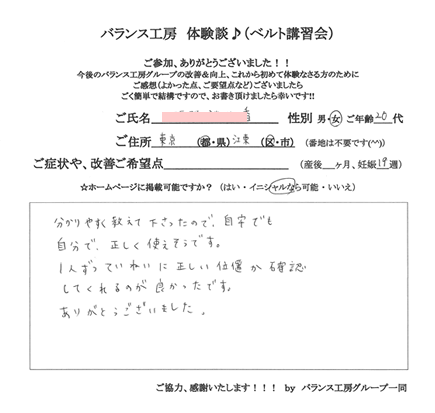 バランス工房 体験談♪(ベルト講習会)
ご参加、ありがとうございました!!
今後のバランス工房グループの改善&向上、これから初めて体験なさる方のために
ご感想(よかった点、ご要望点など)ございましたら
ごく簡単で結構ですので、お書き頂けましたら幸いです!!
ご氏名 性別 男・女 ご年齢 20 代
ご住所 東京 (都・県) 江東 (区・市) (番地は不要です(^^))
ご症状や、改善ご希望点 (産後 ヶ月、妊娠 19 週)
☆ホームページに掲載可能ですか? (はい・イニシャルなら可能・いいえ)
分かりやすく教えて下さったので、自宅でも
自分で、正しく使えそうです。
1人ずつていねいに正しい位置か確認
してくれるのが良かったです。
ありがとうございました。
ご協力、感謝いたします!!! by バランス工房グループ一同